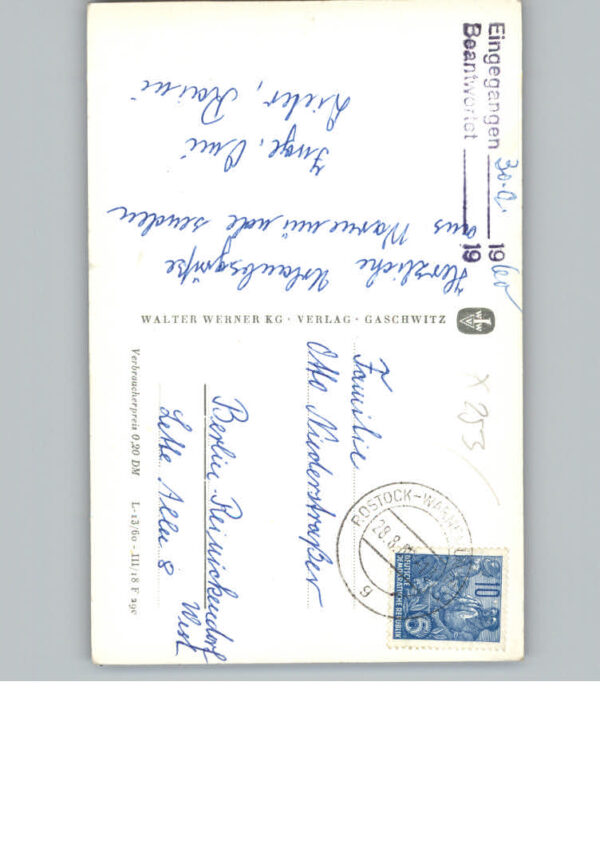 Eingegangen 30.8. 1960
Beantwortet 19
Herzliche Urlaubsgrüße
aus Warnemünde senden
Inge, Omi
Dieter, Raini
WALTER WERNER KG · VERLAG · GASCHWITZ
WW
Familie
Otto Niederstraßer
Berlin-Reinickendorf
West
Lette Allee 8
X 253/
ROSTOCK-WARNEM
28.8.
g
10
DEUTSCHE
DEMOKRATISCHE REPUBLIK
5
Verbraucherpreis 0,20 DM L-13/60 - III/18 F 290